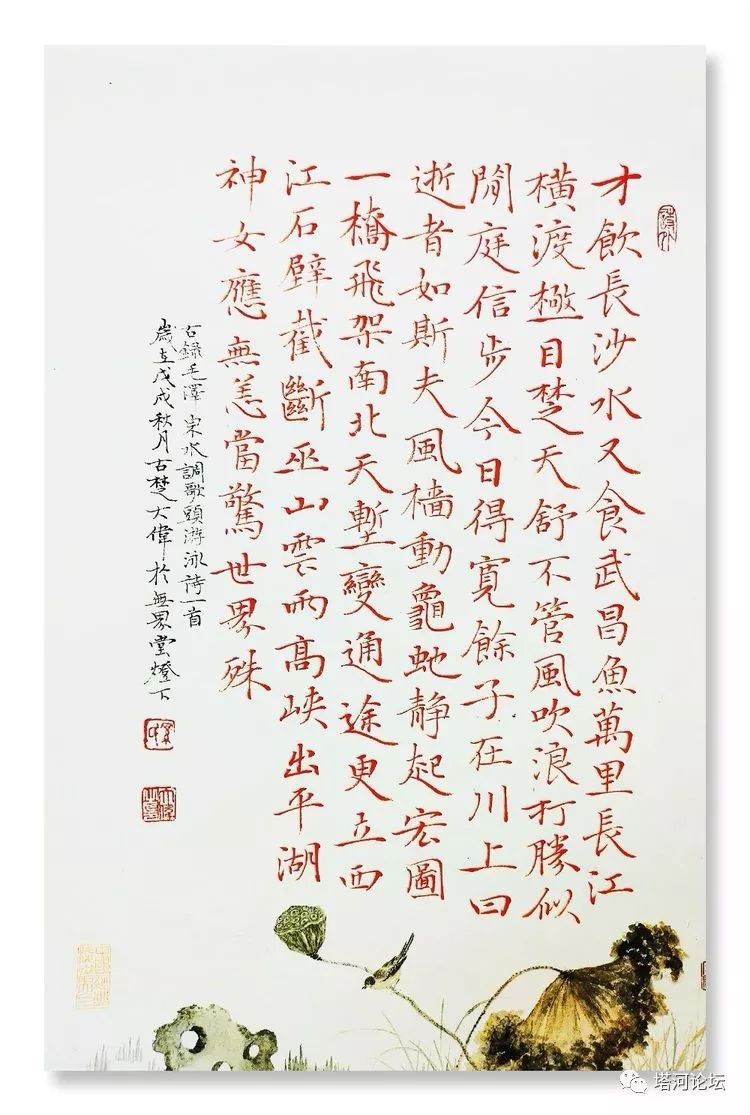 才飲長沙水又食武昌魚萬里長江
橫渡極目楚天舒不管風吹浪打勝似
閒庭信步今日得寬餘子在川上曰
逝者如斯夫風檣動龜蛇静起宏圖
一橋飛架南北天塹變通途更立西
江石壁截斷巫山雲雨高峽出平湖
神女應無恙當驚世界殊
右錄毛澤東水調歌頭游泳詩一首
歲在戊戌秋月古楚大偉於無界堂燈下
塔河论坛